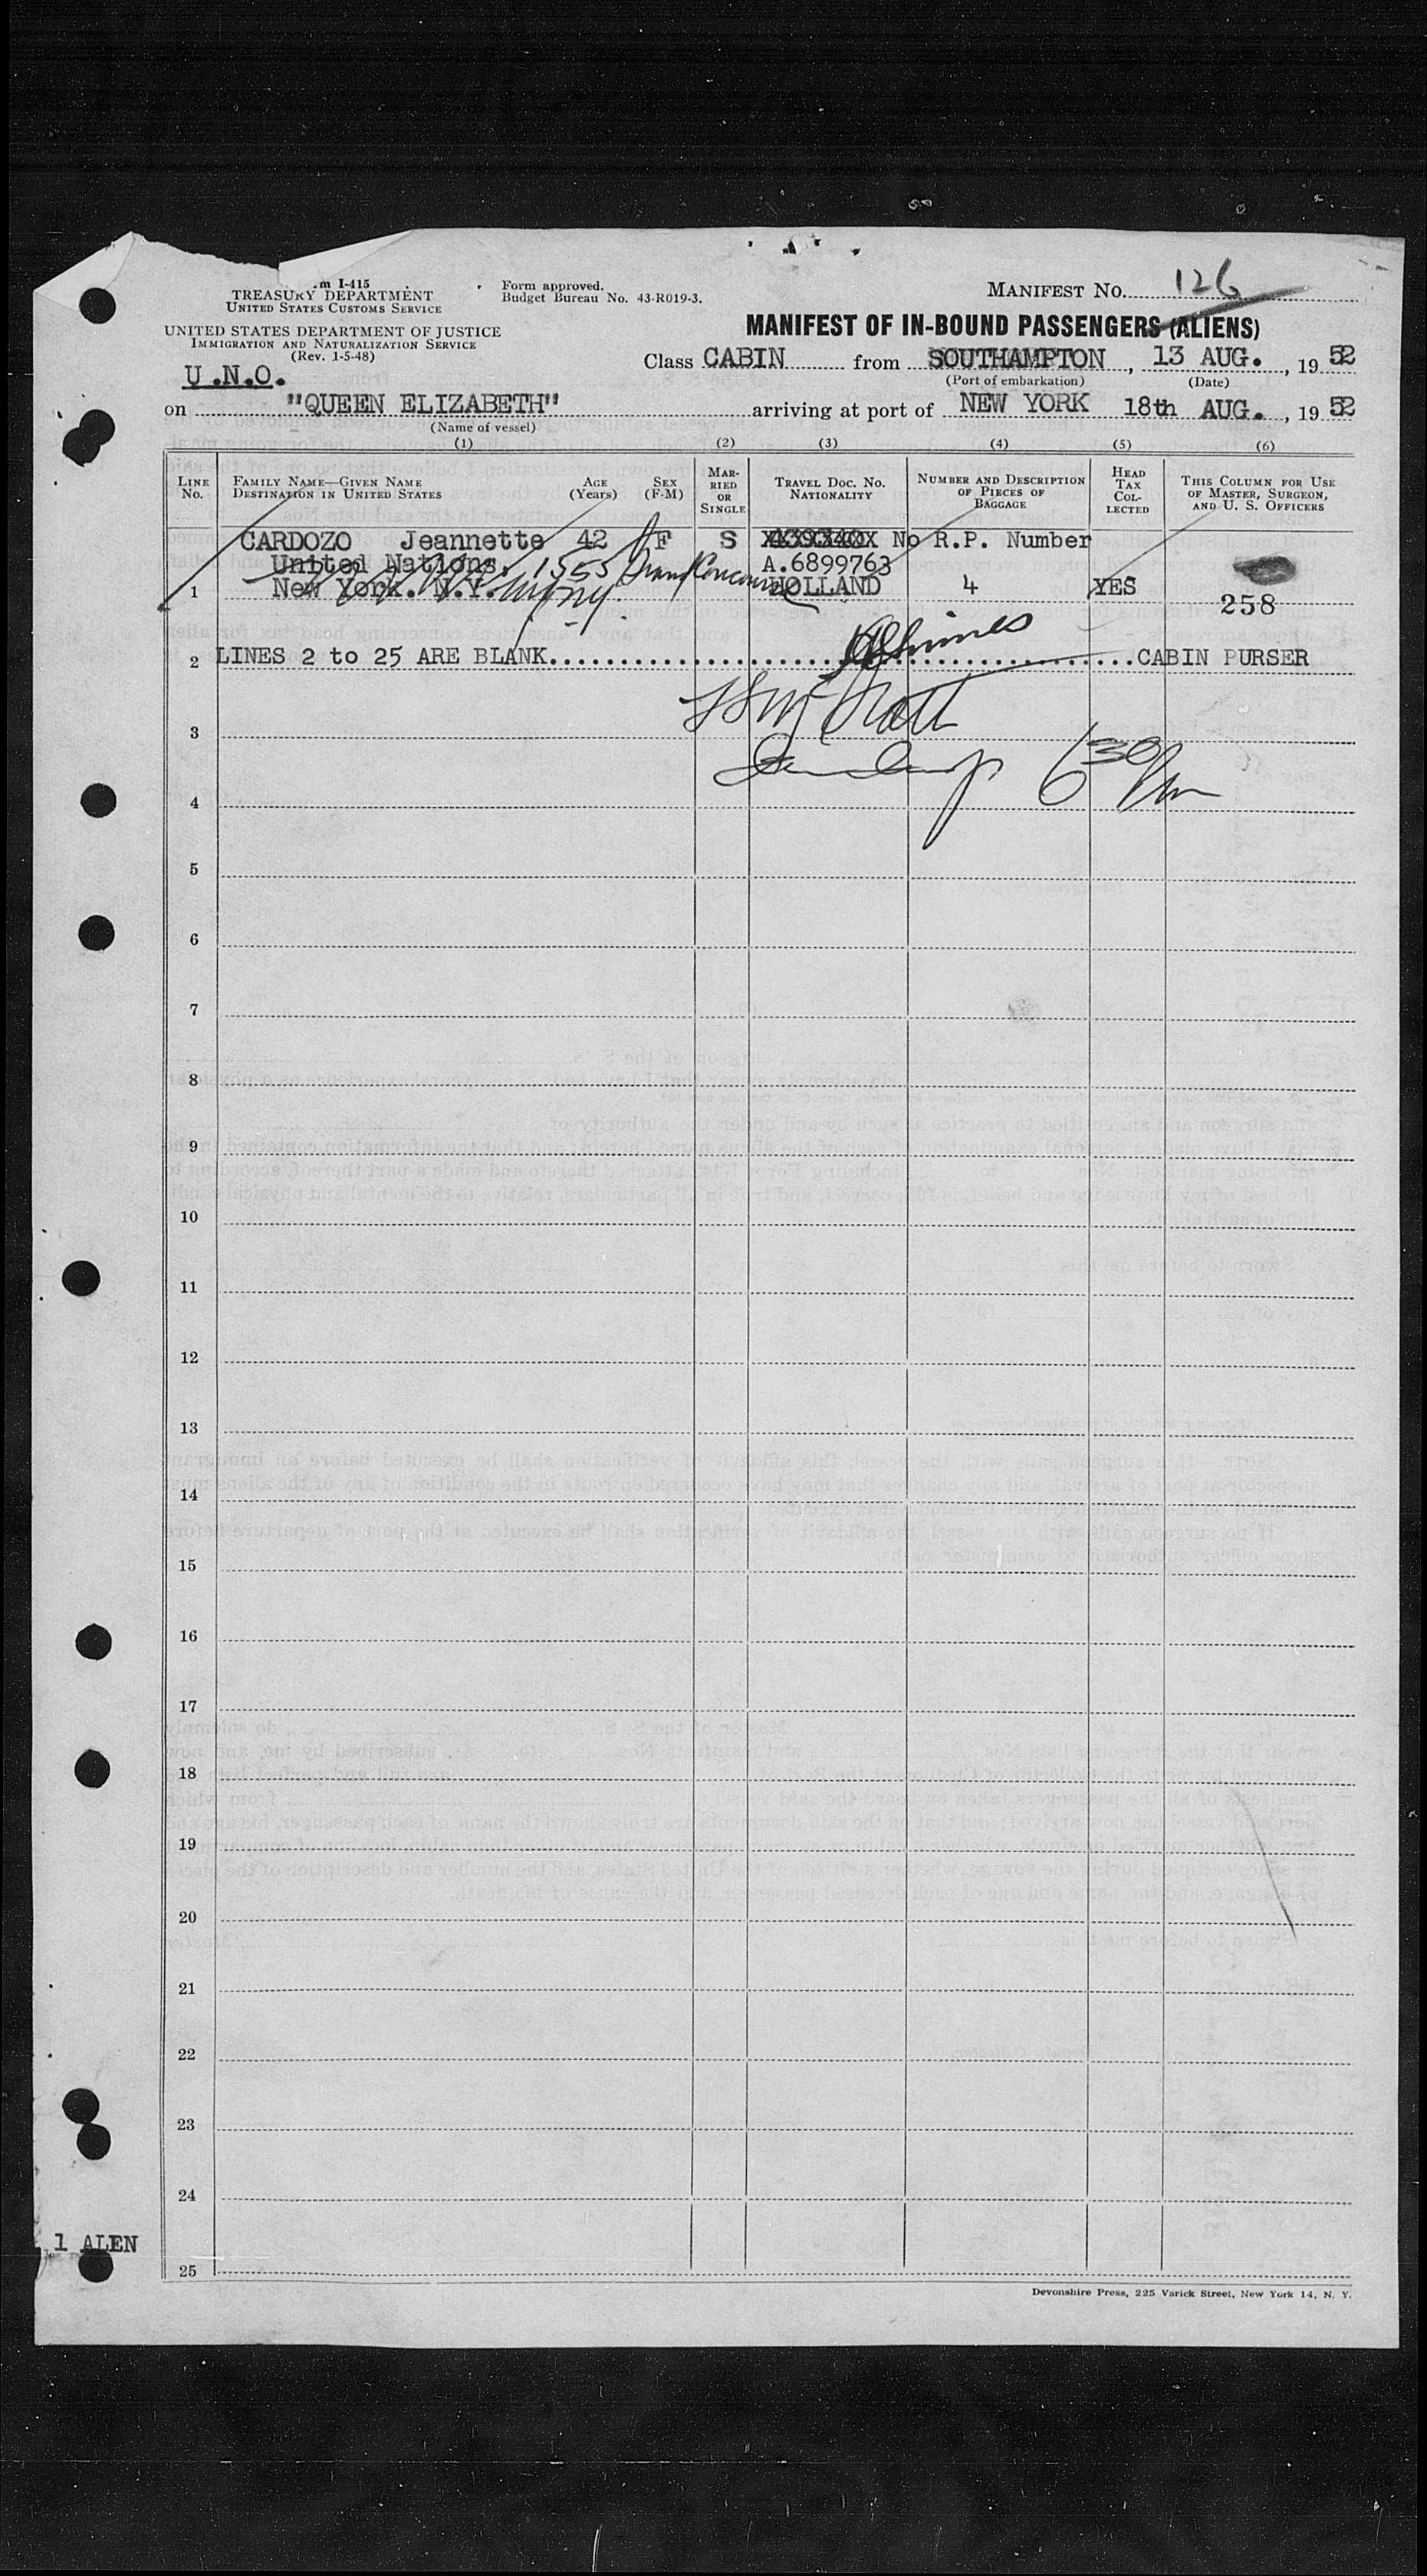 m I-415
TREASURY DEPARTMENT
UNITED STATES CUSTOMS SERVICE
UNITED STATES DEPARTMENT OF JUSTICE
IMMIGRATION AND NATURALIZATION SERVICE
(Rev. 1-5-48)
Form approved.
Budget Bureau No. 43-R019-3.
MANIFEST NO. 126
MANIFEST OF IN-BOUND PASSENGERS (ALIENS)
Class CABIN from SOUTHAMPTON, 13 AUG., 1952
(Port of embarkation) (Date)
U.N.O.
on "QUEEN ELIZABETH" arriving at port of NEW YORK 18th AUG., 1952
(Name of vessel)
(1) (2) (3) (4) (5) (6)
LINE No. FAMILY NAME—GIVEN NAME DESTINATION IN UNITED STATES AGE (Years) SEX (F-M) MARRIED OR SINGLE TRAVEL DOC. NO. NATIONALITY NUMBER AND DESCRIPTION OF PIECES OF BAGGAGE HEAD TAX COLLECTED THIS COLUMN FOR USE OF MASTER, SURGEON, AND U. S. OFFICERS
CARDOZO Jeannette 42 F S No R.P. Number
United Nations. 1555 Grand Concourse A.6899763
1 New York. N.Y. HOLLAND 4 YES
258
2 LINES 2 to 25 ARE BLANK. CABIN PURSER
3
6 30 Pm
4
5
6
7
8
9
10
11
12
13
14
15
16
17
18
19
20
21
22
23
24
1 ALEN
25
Devonshire Press, 225 Varick Street, New York 14, N. Y.